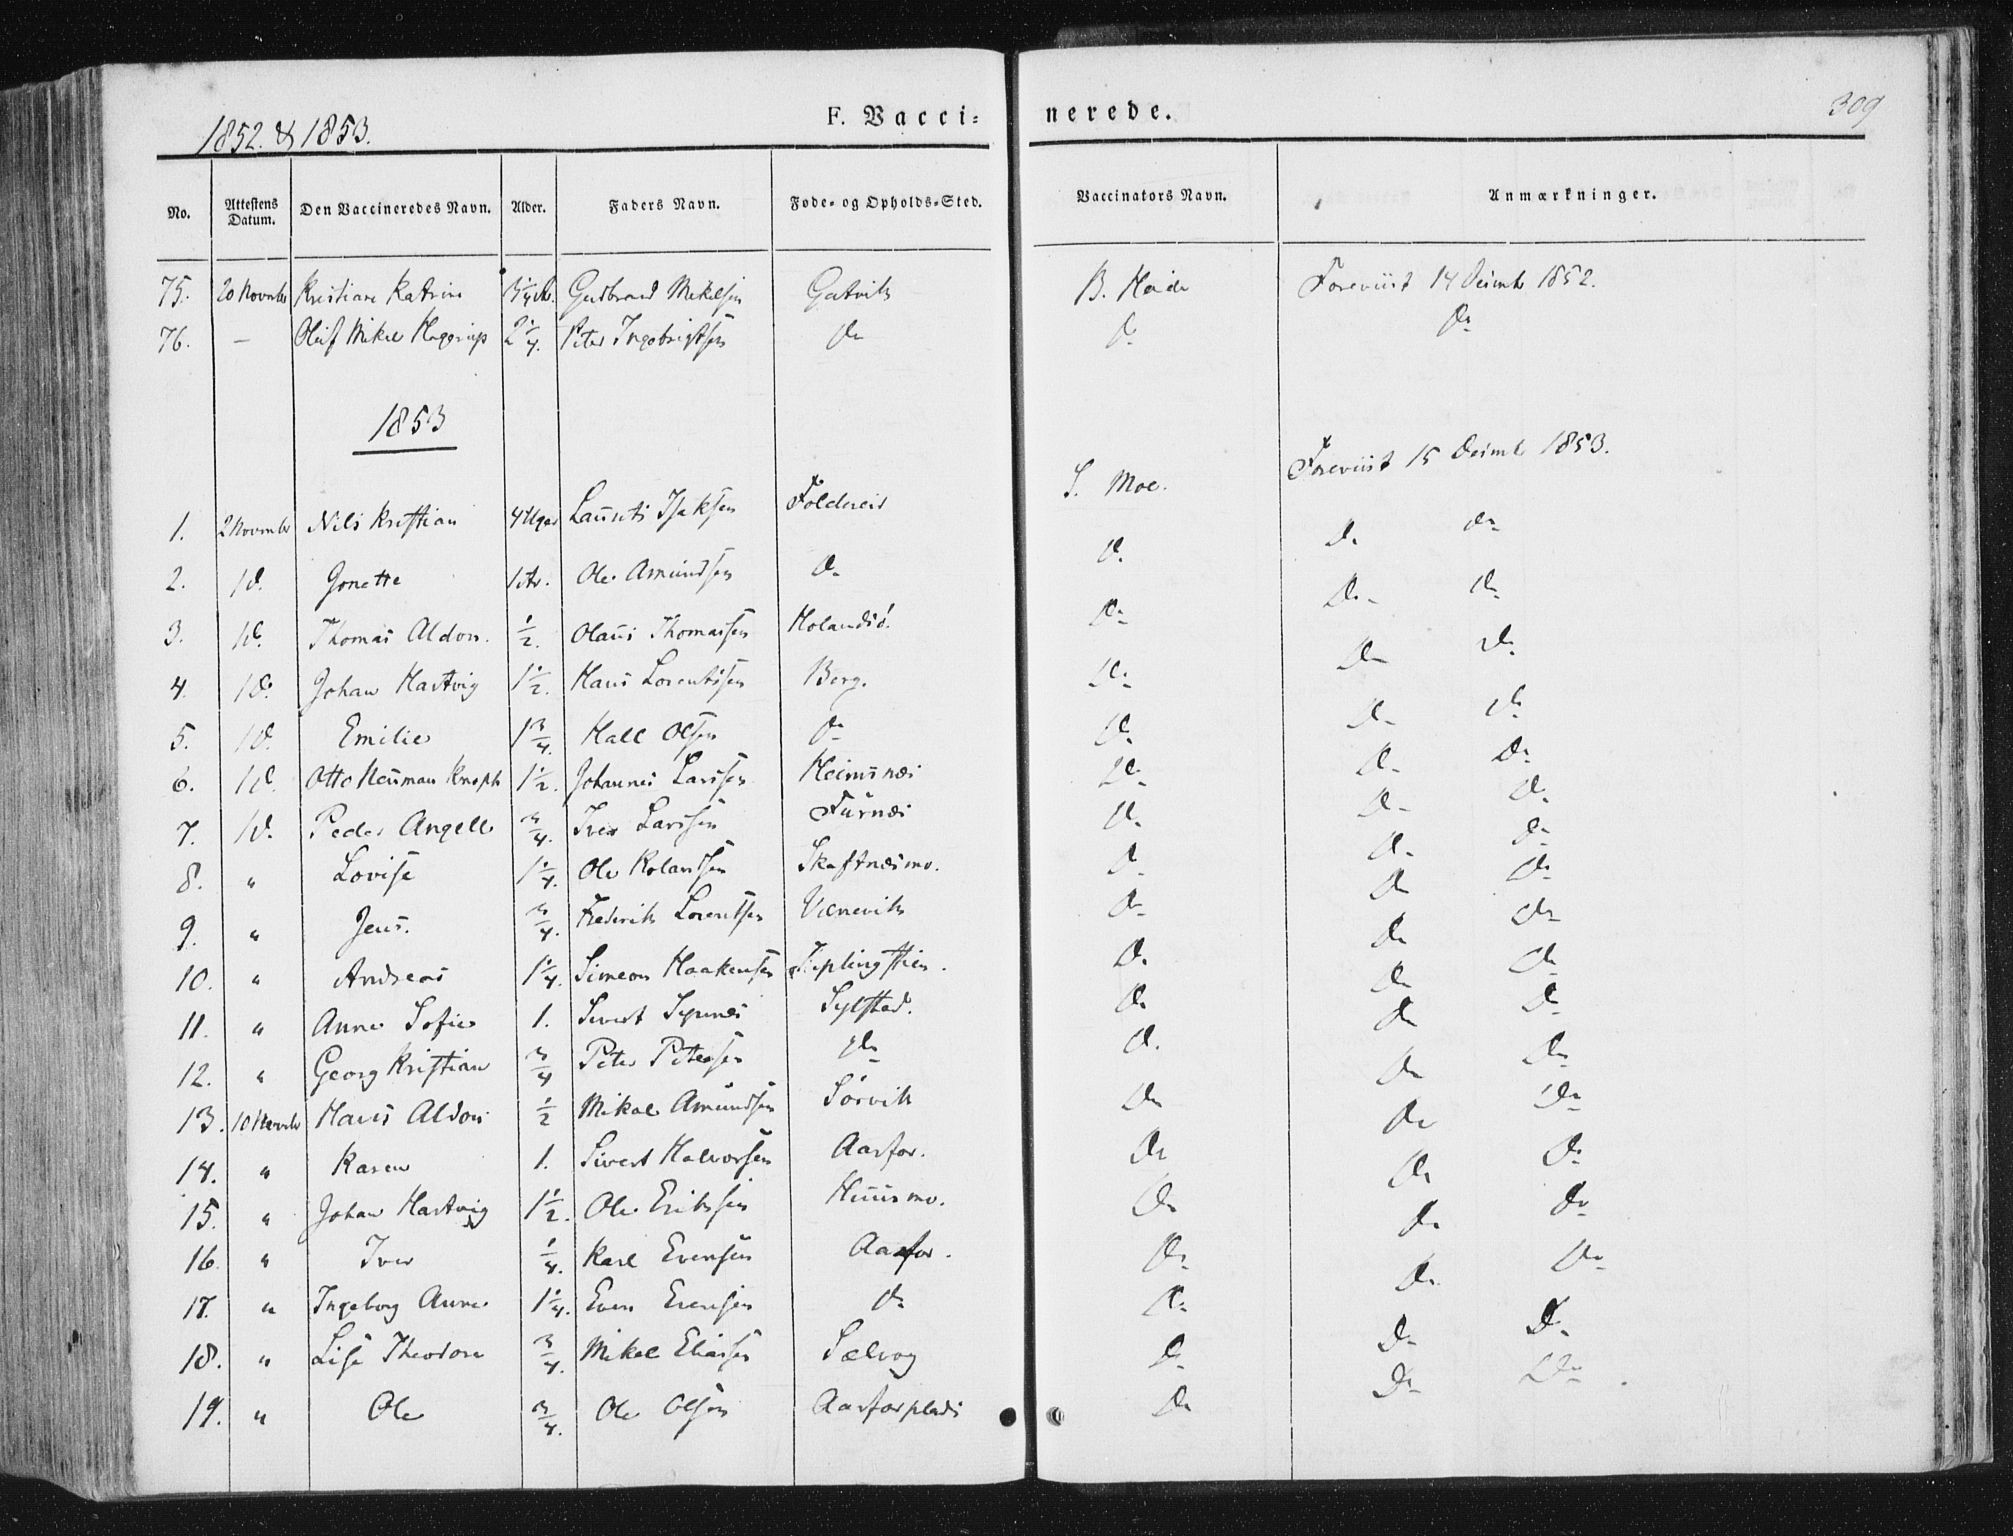 1852. & 1853.
F. Vaccinerede.
309
No. | Attestens Datum. | Den Vaccineredes Navn. | Alder. | Faders Navn. | Føde- og Opholds-Sted. | Vaccinators Navn. | Anmærkninger.
75. | 20 Novmbr | Kristiane Katrine | | Gudbrand Mikelsen | Gutvik | B. Heide | Foreviist 14 Decmbr 1852.
76. | – | Oluf Mikal Hagerup | 2 1/4. | Peter Ingebrigtsen | Do | Do | Do
1853
1. | 2 Novmbr | Nils Kristian | 4 Uger | Laurits Isaksen | Foldereid | S. Moe. | Foreviist 15 Decmbr 1853.
2. | Do | Gonette | 1 Ar. | Ole Amundsen | Do | Do | Do Do
3. | Do | Thomas Aldon. | 1/2. | Olaus Thomassen | Holandsö. | Do | Do Do
4. | Do | Johan Hartvig | 1 1/2. | Hans Lorentssen | Berg. | Do | Do Do
5. | Do | Emilie | 1 3/4. | Hall Olsen | Do | Do | Do Do
6. | Do | Otto Neuman Knoph | 1 1/2. | Johannes Larssen | Heimsnæs | Do | Do Do
7. | Do | Peder Angell | 3/4. | Iver Larssen | Furnæs | Do | Do Do
8. | " | Lovise | 1 1/4. | Ole Rolandsen | Skaftnæsmo. | Do | Do Do
9. | " | Jens. | 3/4. | Frederik Lorentsen | Værevik | Do | Do Do
10. | " | Andreas | 1 1/4. | Simeon Haakensen | | Do | Do Do
11. | " | Anne Sofie | 1. | Sivert | Sylstad. | Do | Do Do
12. | " | Georg Kristian | 3/4 | Peter Petersen | Do | Do | Do Do
13. | 10 Novmbr | Hans Aldon | 1/2 | Mikal Amundsen | Sörvik | Do | Do Do
14. | " | Karen | 1. | Sivert Halvorsen | Aarfor. | Do | Do Do
15. | " | Johan Hartvig | 1 1/2. | Ole Erikssen | Huusmo. | Do | Do Do
16. | " | Iver | 1/4. | Karl Evensen | Aarfor. | Do | Do Do
17. | " | Ingeborg Anne | 1 1/4. | Even Evensen | Do | Do | Do Do
18. | " | Lise Theodore | 3/4. | Mikal Eliassen | Sælvog | Do | Do Do
19. | " | Ole | 3/4. | Ole Olsen | Aarforplads | Do | Do Do